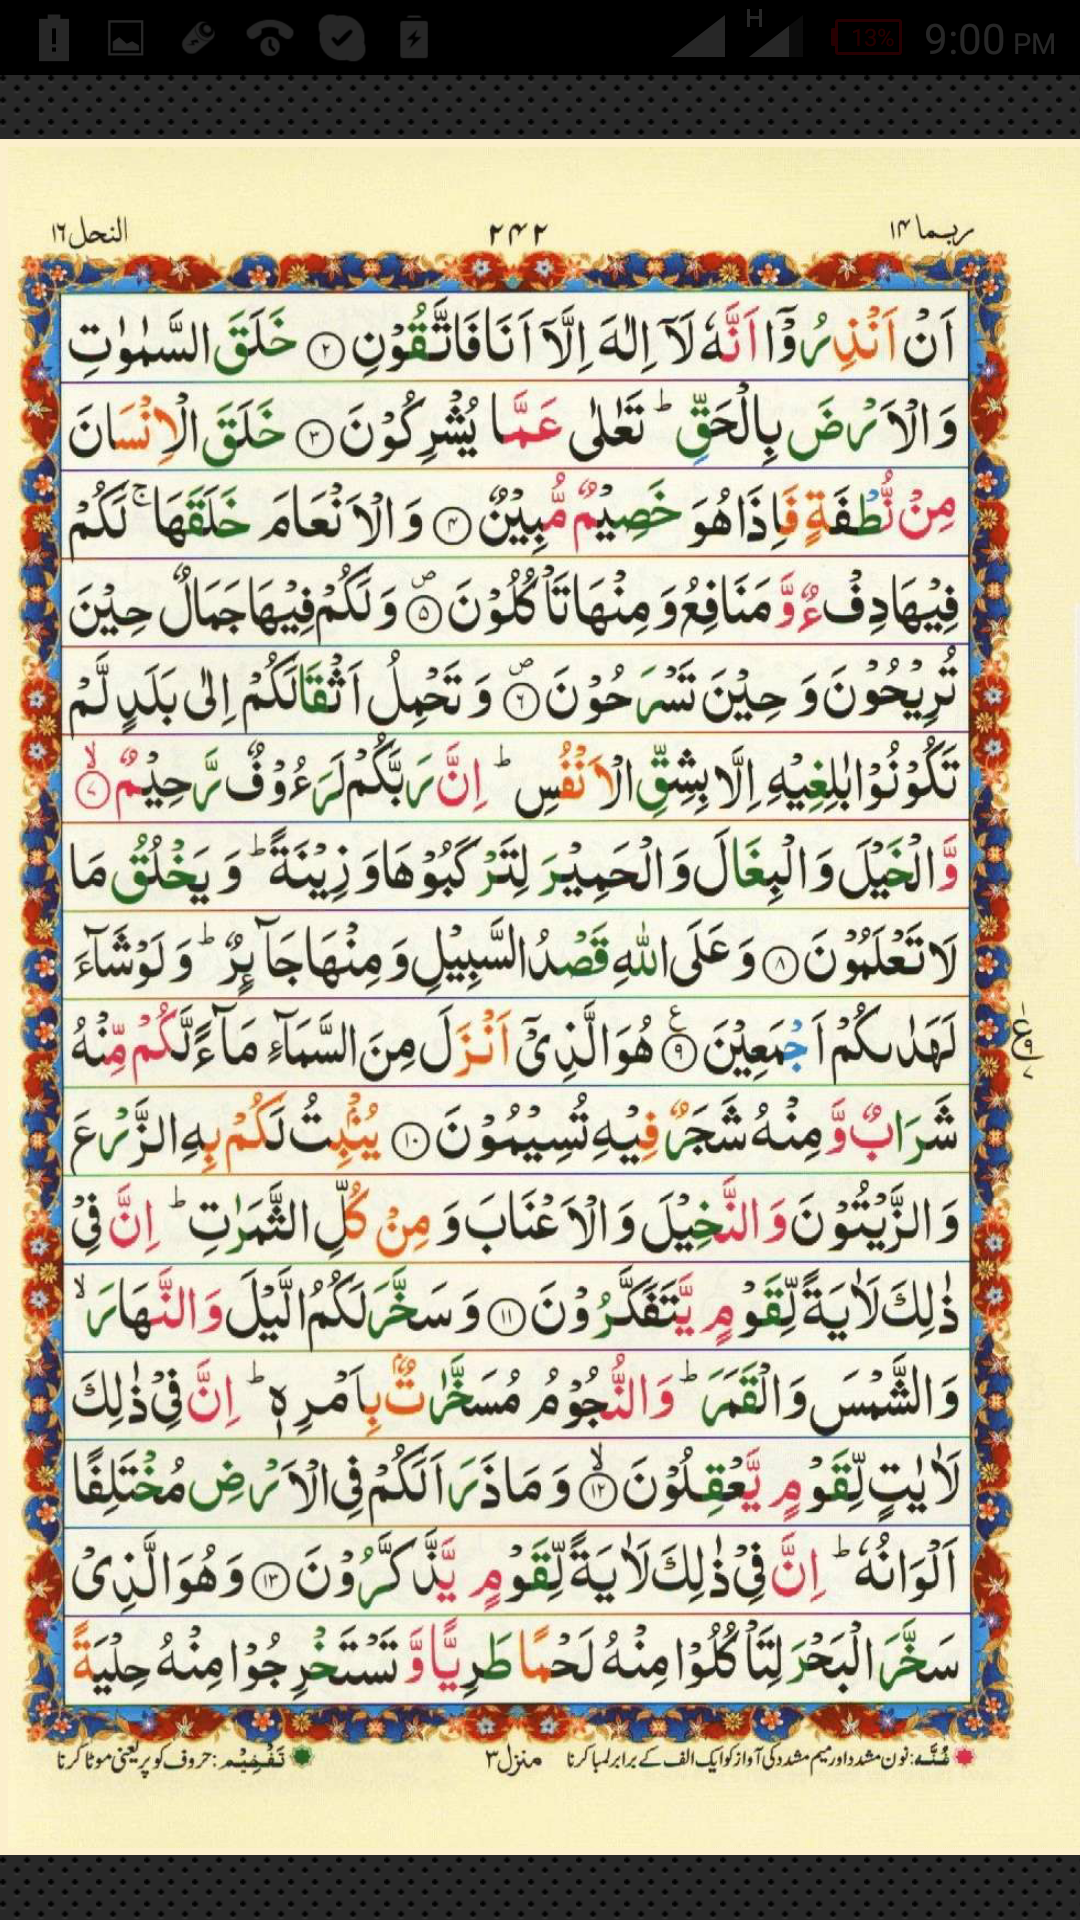 H 13% 9:00 PM
ربما ۱۴ ۲۴۲ النحل ۱۶
اَنْ اَنْذِرُوْۤا اَنَّهٗ لَاۤ اِلٰهَ اِلَّاۤ اَنَا فَاتَّقُوْنِ ﴿۲﴾ خَلَقَ السَّمٰوٰتِ
وَالْاَرْضَ بِالْحَقِّ ؕ تَعٰلٰى عَمَّا يُشْرِكُوْنَ ﴿۳﴾ خَلَقَ الْاِنْسَانَ
مِنْ نُّطْفَةٍ فَاِذَا هُوَ خَصِيْمٌ مُّبِيْنٌ ﴿۴﴾ وَالْاَنْعَامَ خَلَقَهَا ۚ لَكُمْ
فِيْهَا دِفْءٌ وَّ مَنَافِعُ وَ مِنْهَا تَاْكُلُوْنَ ﴿۵﴾ ۪ وَ لَكُمْ فِيْهَا جَمَالٌ حِيْنَ
تُرِيْحُوْنَ وَ حِيْنَ تَسْرَحُوْنَ ﴿۶﴾ ۪ وَ تَحْمِلُ اَثْقَالَكُمْ اِلٰى بَلَدٍ لَّمْ
تَكُوْنُوْا بٰلِغِيْهِ اِلَّا بِشِقِّ الْاَنْفُسِ ؕ اِنَّ رَبَّكُمْ لَرَءُوْفٌ رَّحِيْمٌ ﴿۷﴾ ۙ
وَّ الْخَيْلَ وَ الْبِغَالَ وَ الْحَمِيْرَ لِتَرْكَبُوْهَا وَ زِيْنَةً ؕ وَ يَخْلُقُ مَا
لَا تَعْلَمُوْنَ ﴿۸﴾ وَ عَلَى اللّٰهِ قَصْدُ السَّبِيْلِ وَ مِنْهَا جَآئِرٌ ؕ وَ لَوْ شَآءَ
لَهَدٰىكُمْ اَجْمَعِيْنَ ﴿۹﴾ ع هُوَ الَّذِيْۤ اَنْزَلَ مِنَ السَّمَآءِ مَآءً لَّكُمْ مِّنْهُ
شَرَابٌ وَّ مِنْهُ شَجَرٌ فِيْهِ تُسِيْمُوْنَ ﴿۱۰﴾ يُنْۢبِتُ لَكُمْ بِهِ الزَّرْعَ
وَ الزَّيْتُوْنَ وَ النَّخِيْلَ وَ الْاَعْنَابَ وَ مِنْ كُلِّ الثَّمَرٰتِ ؕ اِنَّ فِيْ
ذٰلِكَ لَاٰيَةً لِّقَوْمٍ يَّتَفَكَّرُوْنَ ﴿۱۱﴾ وَ سَخَّرَ لَكُمُ الَّيْلَ وَ النَّهَارَ ۙ
وَ الشَّمْسَ وَ الْقَمَرَ ؕ وَ النُّجُوْمُ مُسَخَّرٰتٌۢ بِاَمْرِهٖ ؕ اِنَّ فِيْ ذٰلِكَ
لَاٰيٰتٍ لِّقَوْمٍ يَّعْقِلُوْنَ ﴿۱۲﴾ ۙ وَ مَا ذَرَاَ لَكُمْ فِي الْاَرْضِ مُخْتَلِفًا
اَلْوَانُهٗ ؕ اِنَّ فِيْ ذٰلِكَ لَاٰيَةً لِّقَوْمٍ يَّذَّكَّرُوْنَ ﴿۱۳﴾ وَ هُوَ الَّذِيْ
سَخَّرَ الْبَحْرَ لِتَاْكُلُوْا مِنْهُ لَحْمًا طَرِيًّا وَّ تَسْتَخْرِجُوْا مِنْهُ حِلْيَةً
غُنَّه: نون مشدد اور میم مشدد کی آواز کو ایک الف کے برابر لمبا کرنا منزل ۳ تَفْخِیْم: حروف کو پر یعنی موٹا کرنا